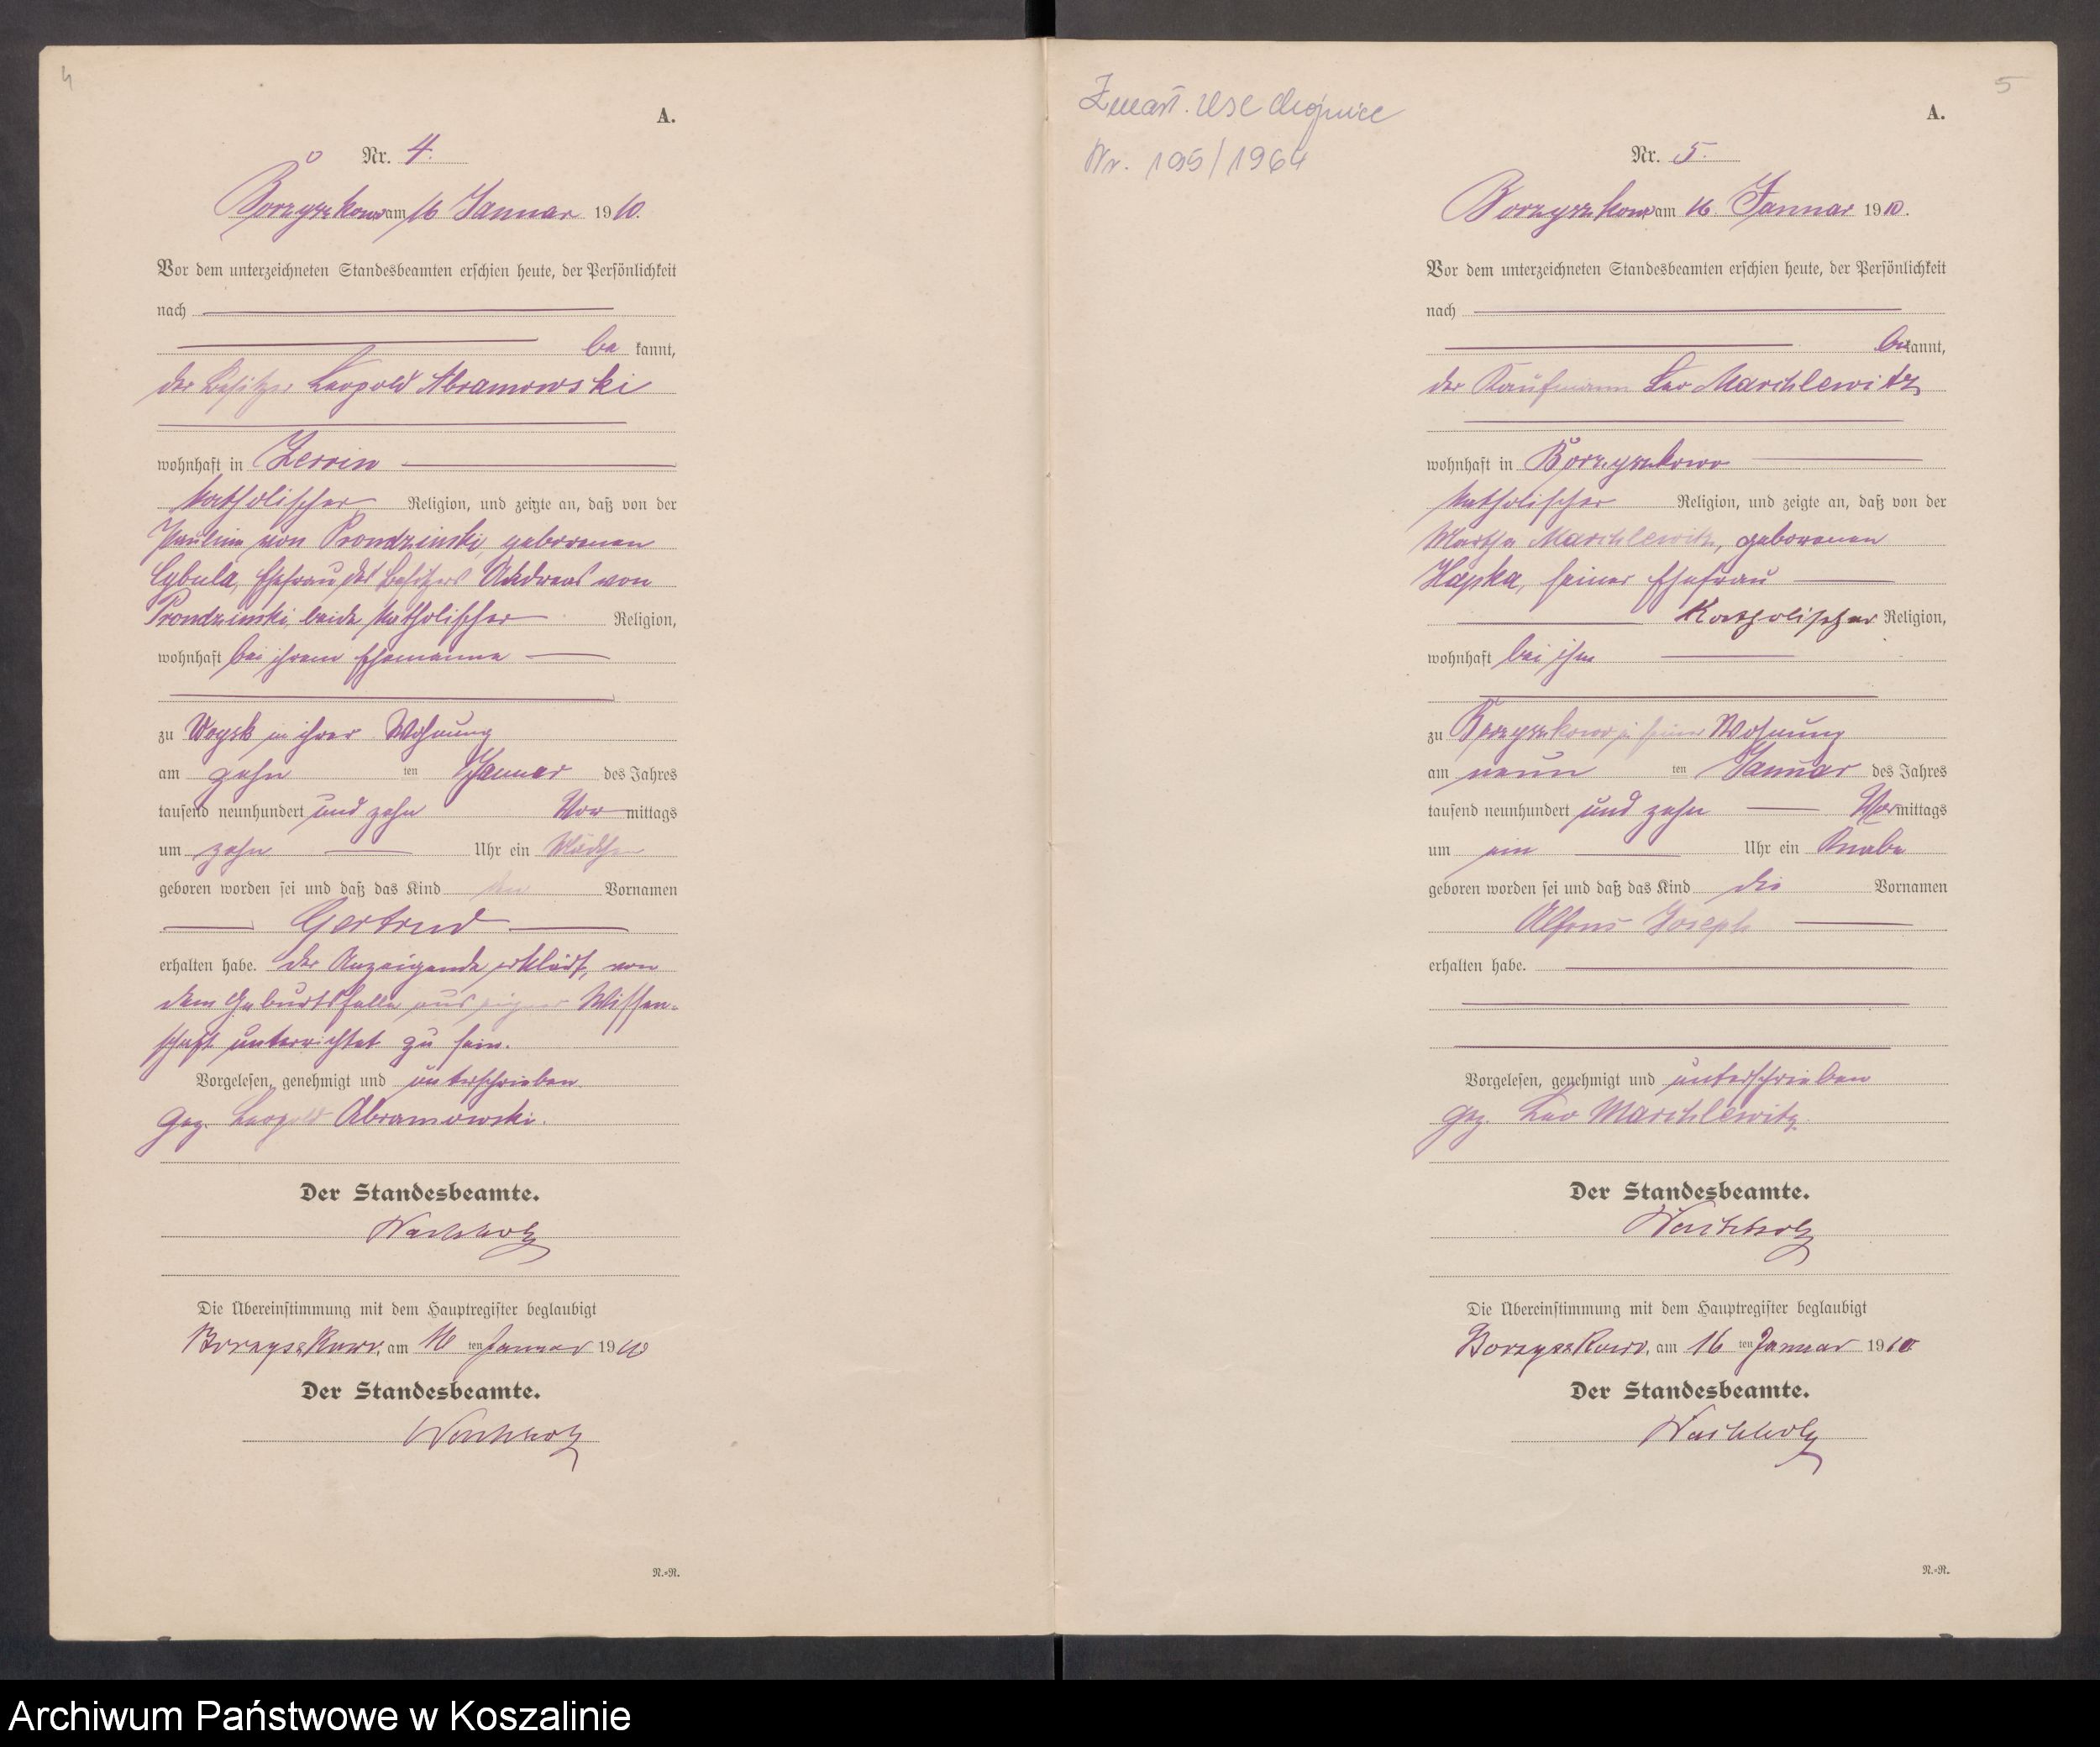 4
A.
Nr. 4.
Borzyszkowo am 16 Januar 1910.
Vor dem unterzeichneten Standesbeamten erschien heute, der Persönlichkeit
nach
be kannt,
der Besitzer Leopold Abramowski
wohnhaft in Zerrin
katholischer Religion, und zeigte an, daß von der
Pauline von Prondzinski geborenen
Cybula, Ehefrau des Besitzers Andreas von
Prondzinski, beide katholischer Religion,
wohnhaft bei ihrem Ehemanne
zu Woysk in ihrer Wohnung
am zehn ten Januar des Jahres
tausend neunhundert und zehn Vor mittags
um zehn Uhr ein Mädchen
geboren worden sei und daß das Kind den Vornamen
Gertrud
erhalten habe. Der Anzeigende erklärt, von
dem Geburtsfalle aus eigener Wissen-
schaft unterrichtet zu sein.
Vorgelesen, genehmigt und unterschrieben
gez. Leopold Abramowski.
Der Standesbeamte.
Wachholz
Die Übereinstimmung mit dem Hauptregister beglaubigt
Borzyszkowo, am 16 ten Januar 1910
Der Standesbeamte.
Wachholz
R.-R.
5
Zmarł. USC Chojnice
Nr. 195/1964
A.
Nr. 5.
Borzyszkowo am 16. Januar 1910.
Vor dem unterzeichneten Standesbeamten erschien heute, der Persönlichkeit
nach
be kannt,
der Kaufmann Leo Marchlewitz
wohnhaft in Borzyszkowo
katholischer Religion, und zeigte an, daß von der
Martha Marchlewitz, geborenen
Hapka, seiner Ehefrau
Katholischer Religion,
wohnhaft bei ihm
zu Borzyszkowo in seiner Wohnung
am neun ten Januar des Jahres
tausend neunhundert und zehn Vor mittags
um ein Uhr ein Knabe
geboren worden sei und daß das Kind die Vornamen
Alfons Joseph
erhalten habe.
Vorgelesen, genehmigt und unterschrieben
gez. Leo Marchlewitz.
Der Standesbeamte.
Wachholz
Die Übereinstimmung mit dem Hauptregister beglaubigt
Borzyszkowo, am 16 ten Januar 1910
Der Standesbeamte.
Wachholz
R.-R.
Archiwum Państwowe w Koszalinie